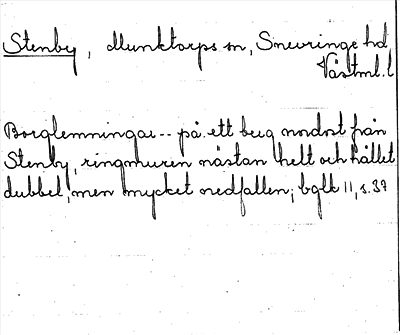 Stenby, Munktorps sn, Snevringe hd
Västml. l
Borglemningar -- på ett berg nordost från
Stenby, ringmuren nästan helt och hållet
dubbel, men mycket nedfallen; bglt 11, s. 37